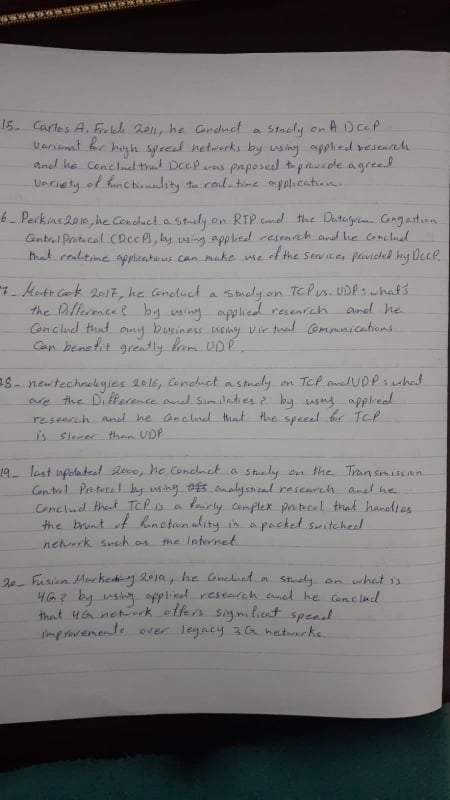 15- Carlos A. Froldi 2011, he Conduct a Study on A DCCP
variant for high speed networks by using applied research
and he Conclud that DCCP was proposed to provide a great
variety of functionality to real-time application.
6- Perkins 2010, he Conduct a study on RTP and the Datagram Congestion
Control Protocol (DCCP), by using applied research and he Conclud
that realtime applications can make use of the services provided by DCCP.
7- Matt Cook 2017, he Conduct a Study on TCP vs. UDP: what's
the Difference? by using applied research and he
Conclud that any business using virtual Communications
Can benefit greatly from UDP.
18- newtechnologies 2016, Conduct a study on TCP and UDP: what
are the Difference and Similaties? by using applied
research and he Conclud that the speed for TCP
is slower than UDP
19- last updated 2000, he Conduct a study on the Transmission
Control Protocol by using analystical research and he
Conclud that TCP is a fairly complex protocol that handles
the brunt of functionality in a packed switched
network such as the Internet.
20- Fusion Marketing 2019, he Conduct a study on what is
4G? by using applied research and he Conclud
that 4G network offers significat speed
improvements over legacy 3G networks.